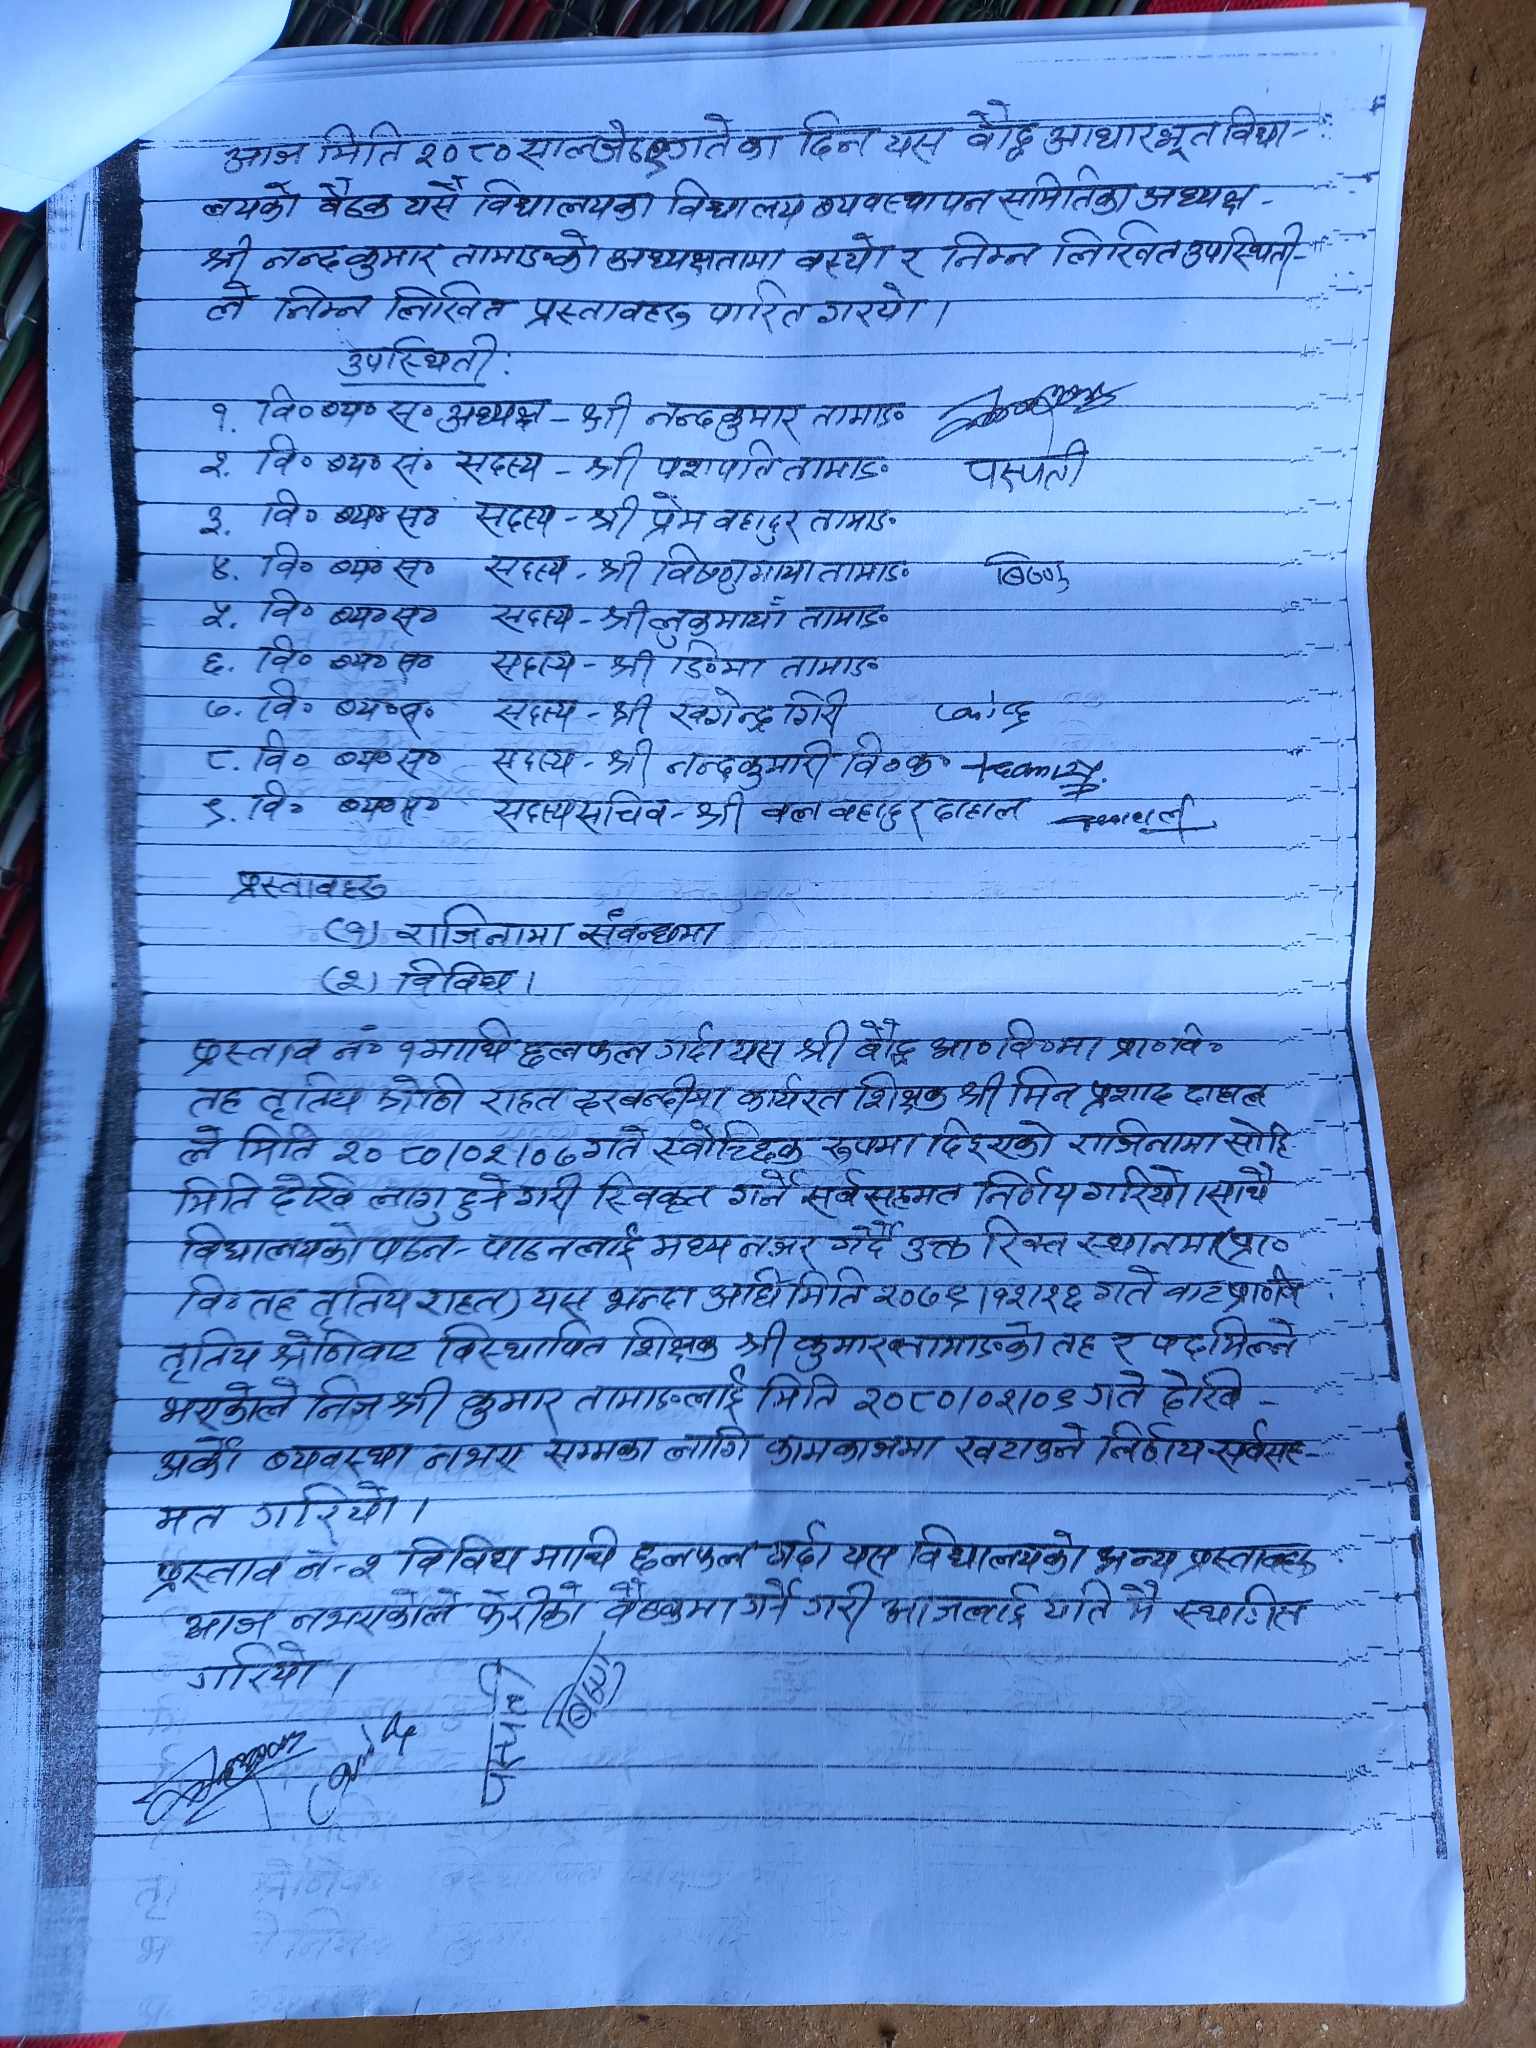 आज मिति २०८० साल जेठ ९ गतेका दिन यस बौद्ध आधारभूत विद्या-
लयको बैठक यसै विद्यालयका विद्यालय व्यवस्थापन समितिका अध्यक्ष -
श्री नन्दकुमार तामाङको अध्यक्षतामा बस्यो र निम्न लिखित उपस्थिती-
ले निम्न लिखित प्रस्तावहरु पारित गरयो ।
उपस्थिती:
१. वि० व्य० स० अध्यक्ष - श्री नन्दकुमार तामाङ
२. वि० व्य० स० सदस्य - श्री पशपति तामाङ पस्पती
३. वि० व्य० स० सदस्य - श्री प्रेम बहादुर तामाङ
४. वि० व्य० स० सदस्य - श्री विष्णुमाया तामाङ विष्णु
५. वि० व्य० स० सदस्य - श्री लुकुमायाँ तामाङ
६. वि० व्य० स० सदस्य - श्री डिमा तामाङ
७. वि० व्य० स० सदस्य - श्री खगेन्द्र गिरी
८. वि० व्य० स० सदस्य - श्री नन्दकुमारी वि०क०
९. वि० व्य० स० सदस्य सचिव - श्री बल बहादुर दाहाल
प्रस्तावहरु
(१) राजिनामा संवन्धमा
(२) विविध ।
प्रस्ताव नं० १ माथि छलफल गर्दा यस श्री बौद्ध आ०वि०मा प्रा०वि०
तह तृतिय श्रेणी राहत दरबन्दीमा कार्यरत शिक्षक श्री मिन प्रशाद दाहाल
ले मिति २०८०/०२/०७ गते स्वेच्छिक रूपमा दिइएको राजिनामा सोहि
मिति देखि लागु हुने गरी स्विकृत गर्ने सर्वसहमत निर्णय गरियो । साथै
विद्यालयको पठन-पाठनलाई मध्य नजर गर्दै उक्त रिक्त स्थानमा (प्रा०
वि० तह तृतिय राहत) यस भन्दा अघि मिति २०७९/१२/२६ गते बाट प्रा०वि
तृतिय श्रेणिबाट विस्थापित शिक्षक श्री कुमार तामाङको तह र पद मिल्ने
भएकोले निज श्री कुमार तामाङलाई मिति २०८०/०२/०९ गते देखि -
अर्को व्यवस्था नभए सम्मका लागि कामकाजमा खटाउने निर्णय सर्वसह-
मत गरियो ।
प्रस्ताव नं-२ विविध माथि छलफल गर्दा यस विद्यालयको अन्य प्रस्तावहरु
आज नभएकोले फेरीको बैठकमा गर्ने गरी आजलाई यति मै स्थगित
गरियो ।
पस्पती
विष्णु